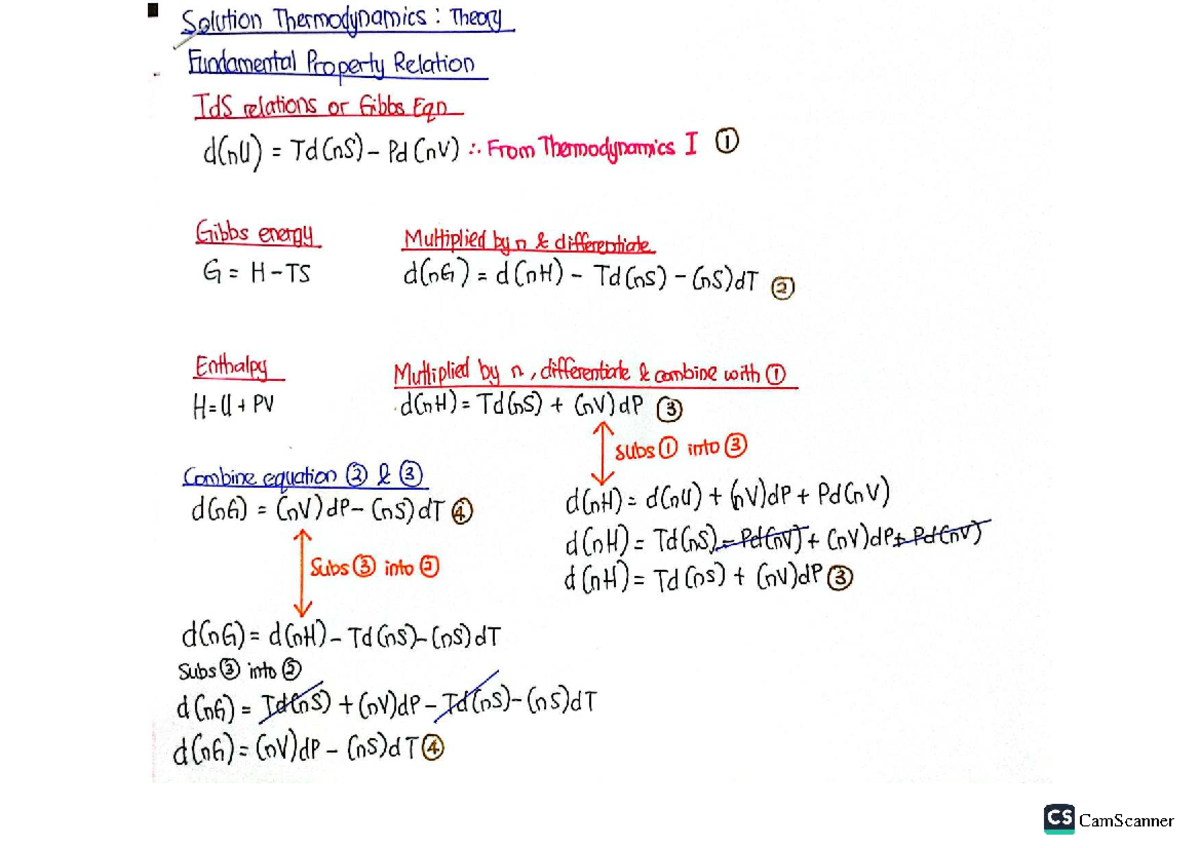 Solution Thermodynamics : Theory
Fundamental Property Relation
TdS relations or Gibbs Eqn
d(nU) = Td(nS) – Pd(nV) ∴ From Thermodynamics I ①
Gibbs energy
G = H – TS
Multiplied by n & differentiate
d(nG) = d(nH) – Td(nS) – (nS)dT ②
Enthalpy
H = U + PV
Multiplied by n, differentiate & combine with ①
d(nH) = Td(nS) + (nV)dP ③
Subs ① into ③
d(nH) = d(nU) + (nV)dP + Pd(nV)
d(nH) = Td(nS) – Pd(nV) + (nV)dP + Pd(nV)
d(nH) = Td(nS) + (nV)dP ③
Combine equation ② & ③
d(nG) = (nV)dP – (nS)dT ④
Subs ③ into ②
d(nG) = d(nH) – Td(nS) – (nS)dT
Subs ③ into ②
d(nG) = Td(nS) + (nV)dP – Td(nS) – (nS)dT
d(nG) = (nV)dP – (nS)dT ④
CS CamScanner